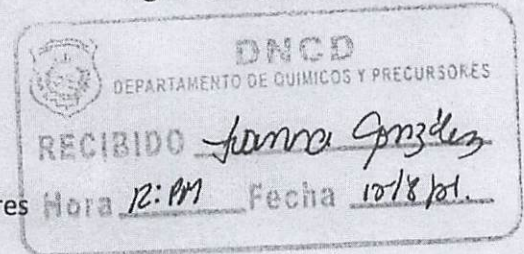 DNCD
DEPARTAMENTO DE QUIMICOS Y PRECURSORES
RECIBIDO Juanna González
res Hora 12: PM Fecha 10/8/21.